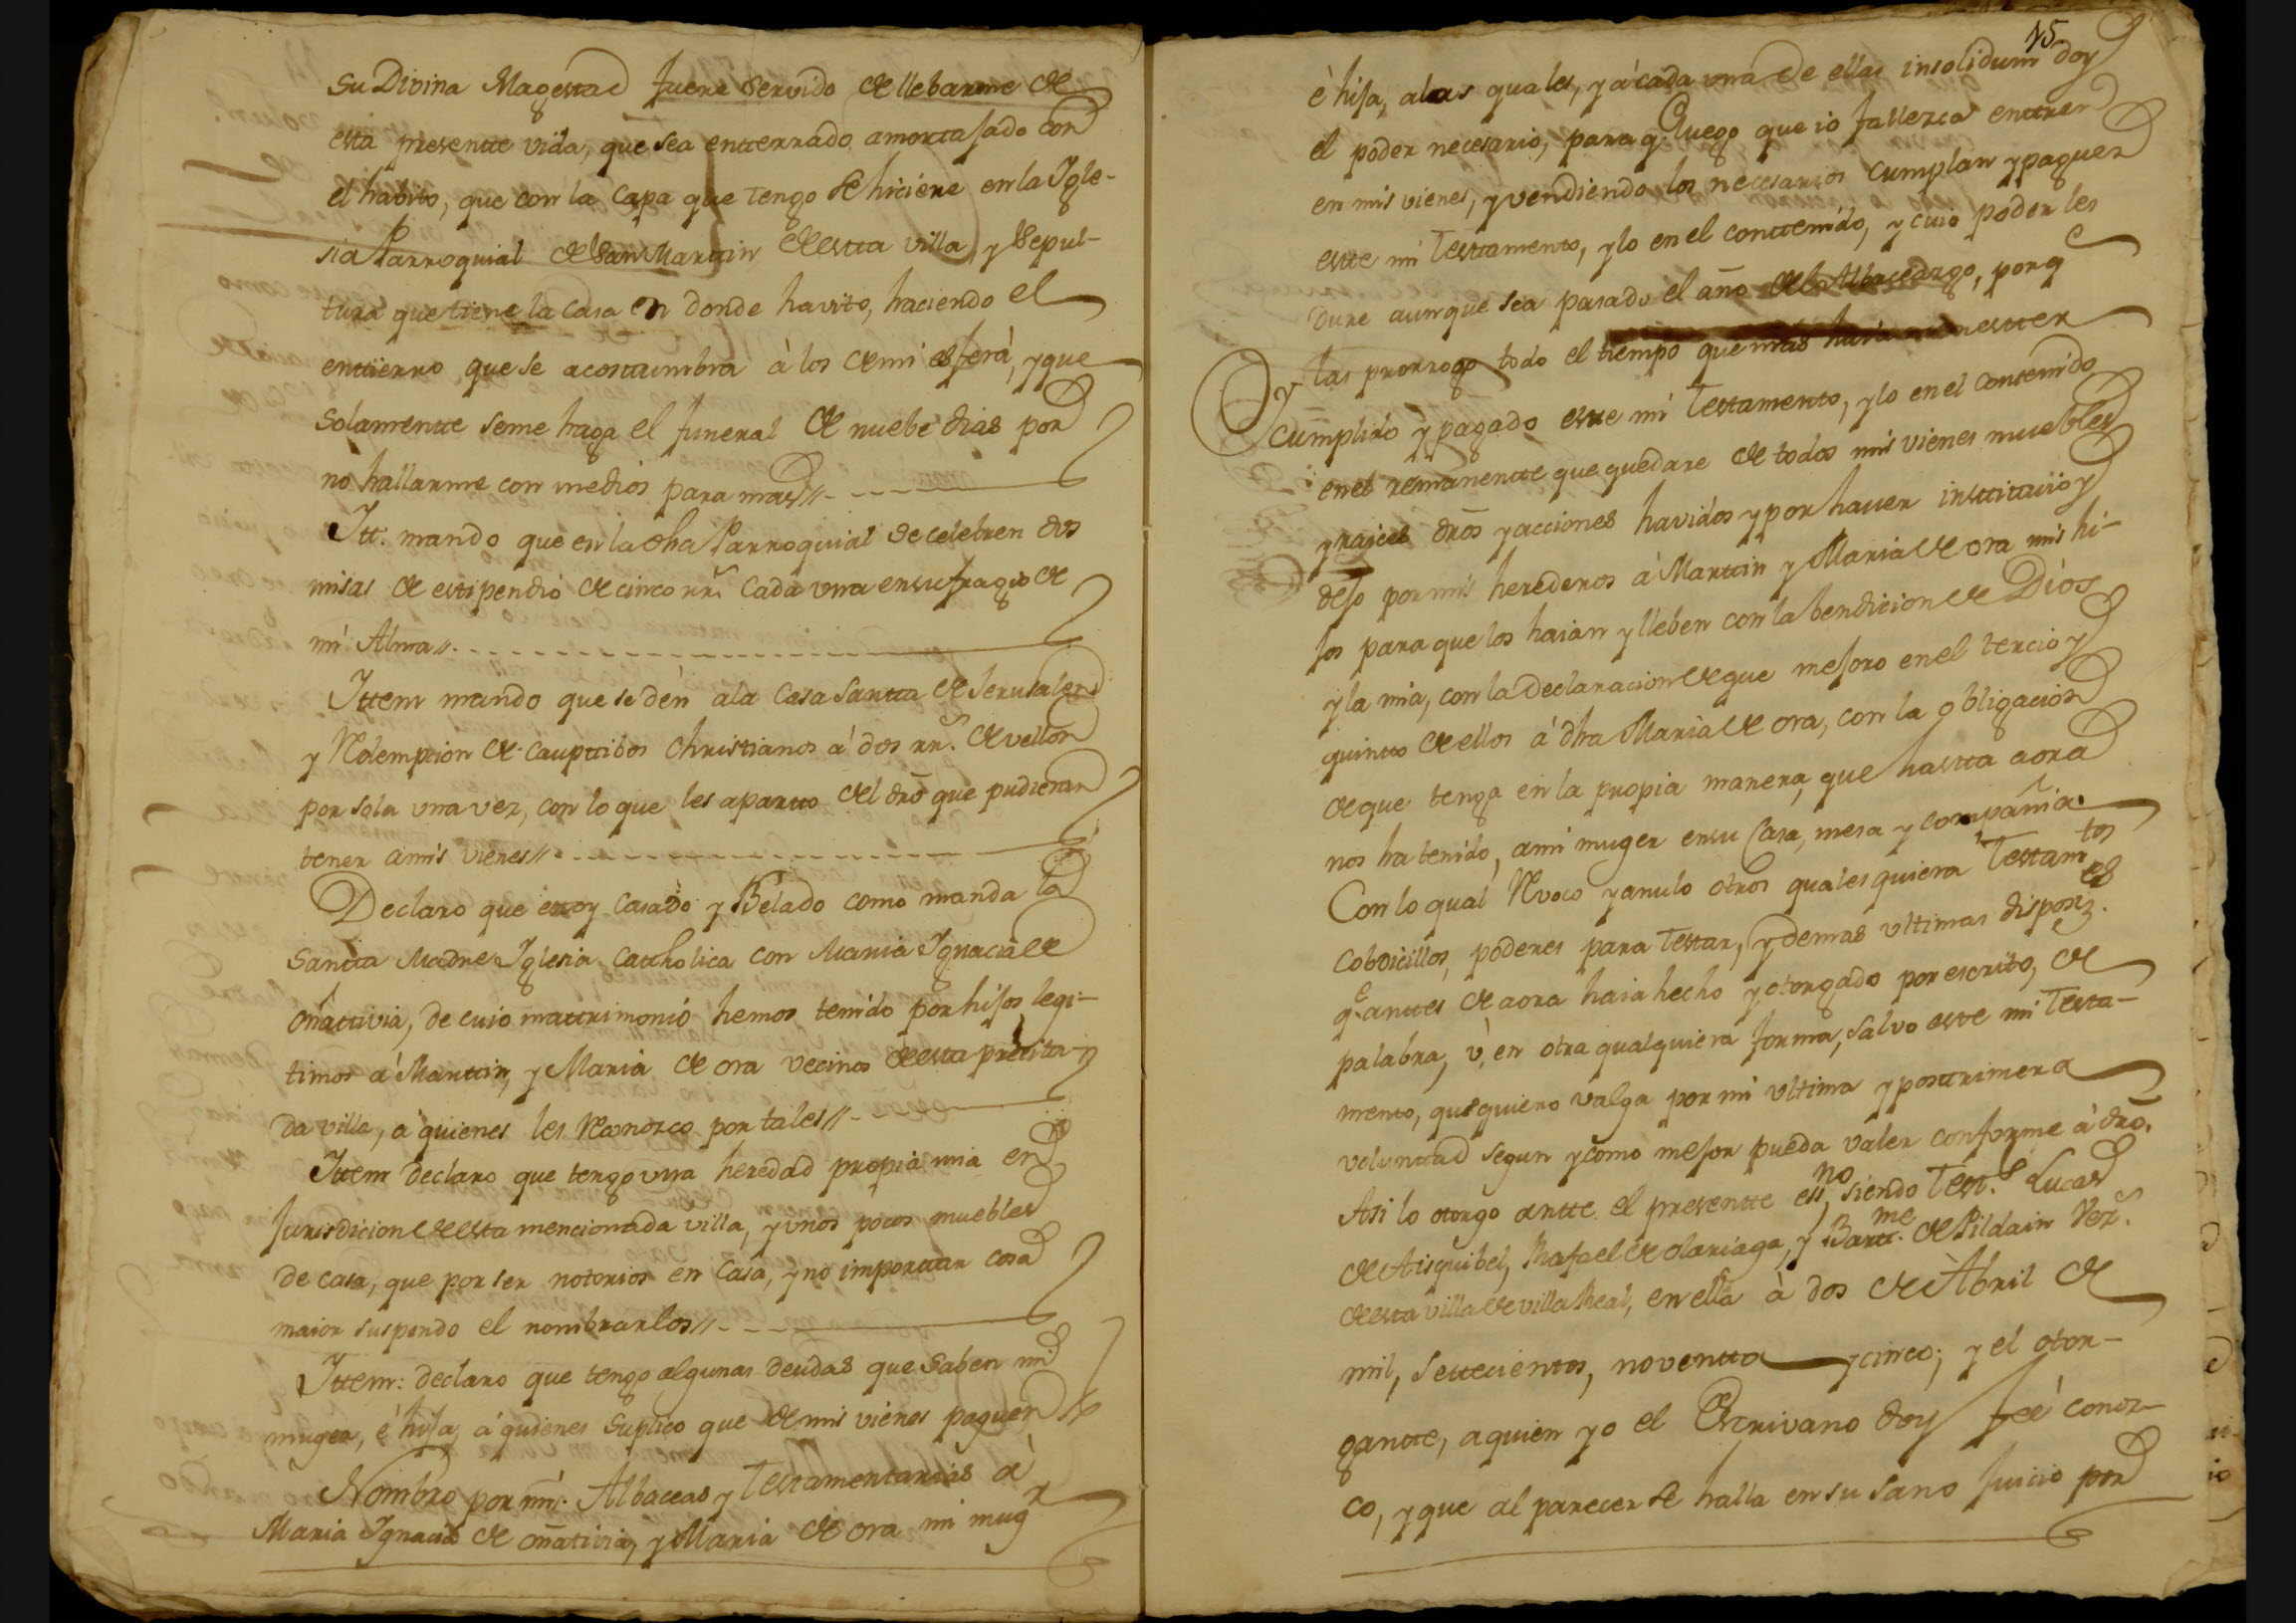 Su Divina Magesttad fuere servido de llebarme de
esta presentte vida, que sea entterrado amorttajado con
el habito, que con la Capa que tengo se hiciere en la Igle-
sia Parroquial de San Marttin de estta villa, y Sepul-
tura que tiene la Casa en donde havito, haciendo el
enttierro que se acosttumbra à los de mi esferà, y que
solamentte se me haga el funeral de nuebe dias por
no hallarme con medios para mas//-
Itt: mando que en la dha Parroquial se celebren dos
misas de estipendio de cinco rr.s Cada una en sufragio de
mi Alma//.
Ittem mando que se dèn a la Casa Santta de Jerusalen
y Redempcion de Cauptibos Christianos à dos rr.s de vellon
por sola una vez, con lo que les apartto del dro que pudieran
tener a mis vienes//.
Declaro que estoy Casado y Belado como manda la
Santta Madre Iglesia Cattholica con Maria Ignacia de
Oñattivia, de cuio mattrimonio hemos tenido por hijos legi-
timos à Marttin, y Maria de ora vecinos de esta precita-
da villa, à quienes les Reconozco por tales//-
Ittem declaro que tengo una heredad propia mia en
Jurisdicion de esta mencionada villa, y unos pocos muebles
de casa, que por ser notorios en Casa, y no importtar cosa
maior suspendo el nombrarlos//-
Ittem: declaro que tengo algunas deudas que Saben mi
muger, è hija, à quienes Suplico que de mis vienes paguen
Nombro por mis Albaceas y Testamentarias à
Maria Ignacia de oñativia, y Maria de ora mi mug.r
15
è hija, a las quales, y à cada una de ellas insolidum doy
el poder necesario, para q.e luego que io fallezca enttren
en mis vienes, y vendiendo los necesarios Cumplan y paguen
estte mi Testtamento, y lo en el conttenido, y cuio poder les
dure aunque sea pasado el año del Albaceazgo, porq.e
las prorrogo todo el tiempo que mas hubieren menestter
Y cumplido y pagado este mi Testamento, y lo en el contenido
en el remanentte que quedare de todos mis vienes muebles
y raices dros y acciones havidos y por haver insttittuio y
dejo por mis herederos à Marttin y Maria de ora mis hi-
jos para que los haian y lleben con la bendicion de Dios
y la mia, con la declaracion de que mejoro en el tercio y
quintto de ellos à dha Maria de ora, con la obligacion
de que tenga en la propia manera, que hastta aora
nos ha tenido, a mi muger en su Casa, mesa y compañia.
Con lo qual Revoco y anulo otros quales quiera Testam.tos
Cobdicillos, poderes para Testar, y demas ultimas disposiz.es
q.e anttes de aora haia hecho y otorgado por escrito, de
palabra, ù, en otra qualquiera forma, salvo este mi Testa-
mento, que quiero valga por mi ultima y posttrimera
voluntad segun y como mejor pueda valer conforme à dro.
Asi lo otorgo antte el presentte ess.no, siendo Test.s Lucas
de Aisquibel, Rafael de olariaga, y Bartt.me de Pildain Vez.s
de esta villa de villa Real, en ella à dos de Abril de
mil, settecientos, noventta y cinco; y el otor-
gantte, a quien yo el Escrivano doy feè conoz-
co, y que al parecer se halla en su sano Juicio por